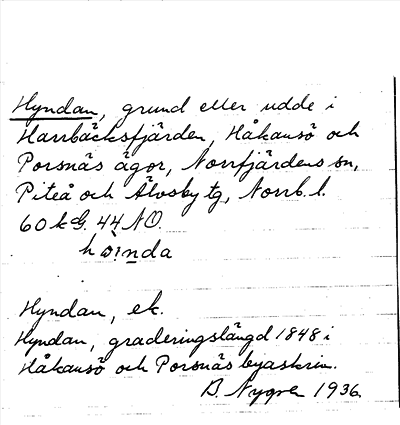 Hyndan, grund eller udde i
Harrbäcksfjärden, Håkansö och
Porsnäs ägor, Norrfjärdens sn,
Piteå och Älvsby tg, Norrb. l.
60 k G. 44 NO.
Hyndan, ek.
Hyndan, graderingslängd 1848 i
Håkansö och Porsnäs byaskrin.
B. Nygren 1936.